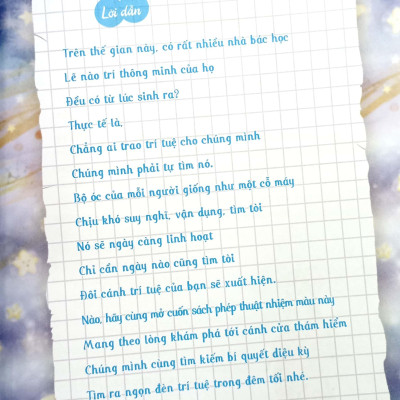 Lời dẫn
Trên thế gian này, có rất nhiều nhà bác học
Lẽ nào trí thông minh của họ
Đều có từ lúc sinh ra?
Thực tế là,
Chẳng ai trao trí tuệ cho chúng mình
Chúng mình phải tự tìm nó.
Bộ óc của mỗi người giống như một cỗ máy
Chịu khó suy nghĩ, vận dụng, tìm tòi
Nó sẽ ngày càng linh hoạt
Chỉ cần ngày nào cũng tìm tòi
Đôi cánh trí tuệ của bạn sẽ xuất hiện.
Nào, hãy cùng mở cuốn sách phép thuật nhiệm màu này
Mang theo lòng khám phá tới cánh cửa thám hiểm
Chúng mình cùng tìm kiếm bí quyết diệu kỳ
Tìm ra ngọn đèn trí tuệ trong đêm tối nhé.